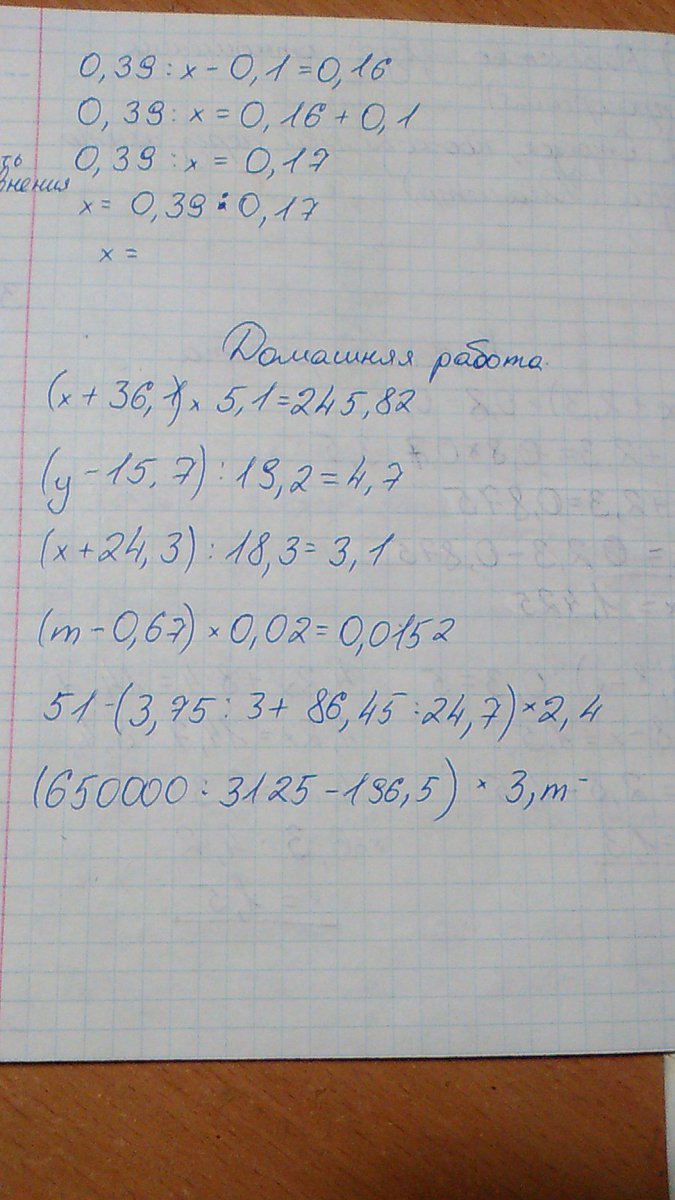 0,39 : x - 0,1 = 0,16
0,39 : x = 0,16 + 0,1
0,39 : x = 0,17
x = 0,39 : 0,17
x =
Домашняя работа.
(x + 36,1) × 5,1 = 245,82
(y - 15,7) : 19,2 = 4,7
(x + 24,3) : 18,3 = 3,1
(m - 0,67) × 0,02 = 0,0152
51 - (3,75 : 3 + 86,45 : 24,7) × 2,4
(650000 : 3125 - 196,5) × 3,m